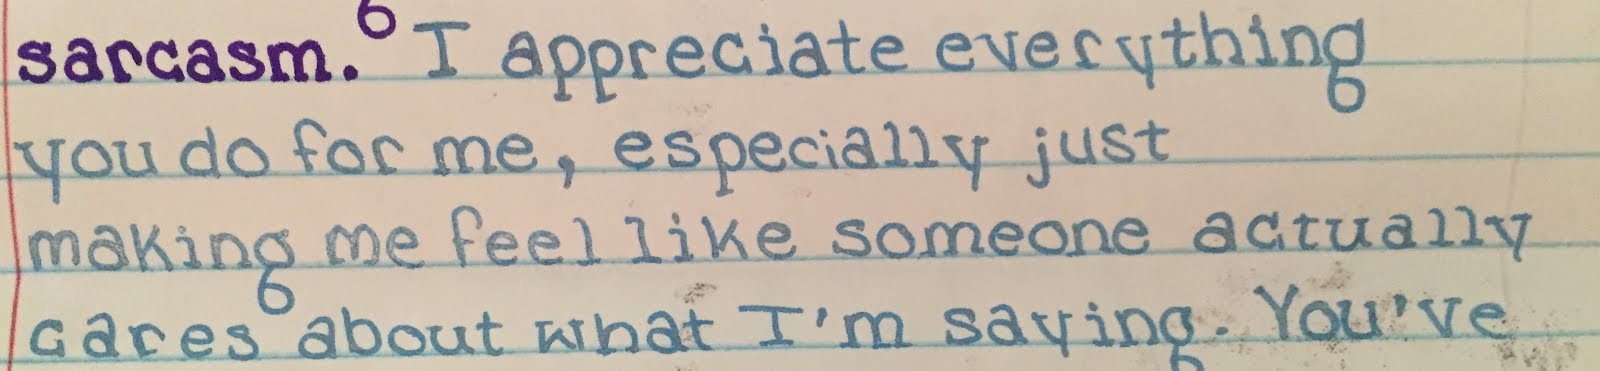 sarcasm. I appreciate everything
you do for me, especially just
making me feel like someone actually
cares about what I'm saying. You've